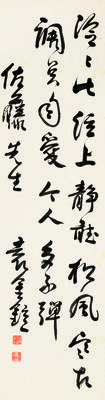 泠泠七絃上靜聽松風寒古
調雖自愛今人多不彈
佐藤先生
袁金鎧